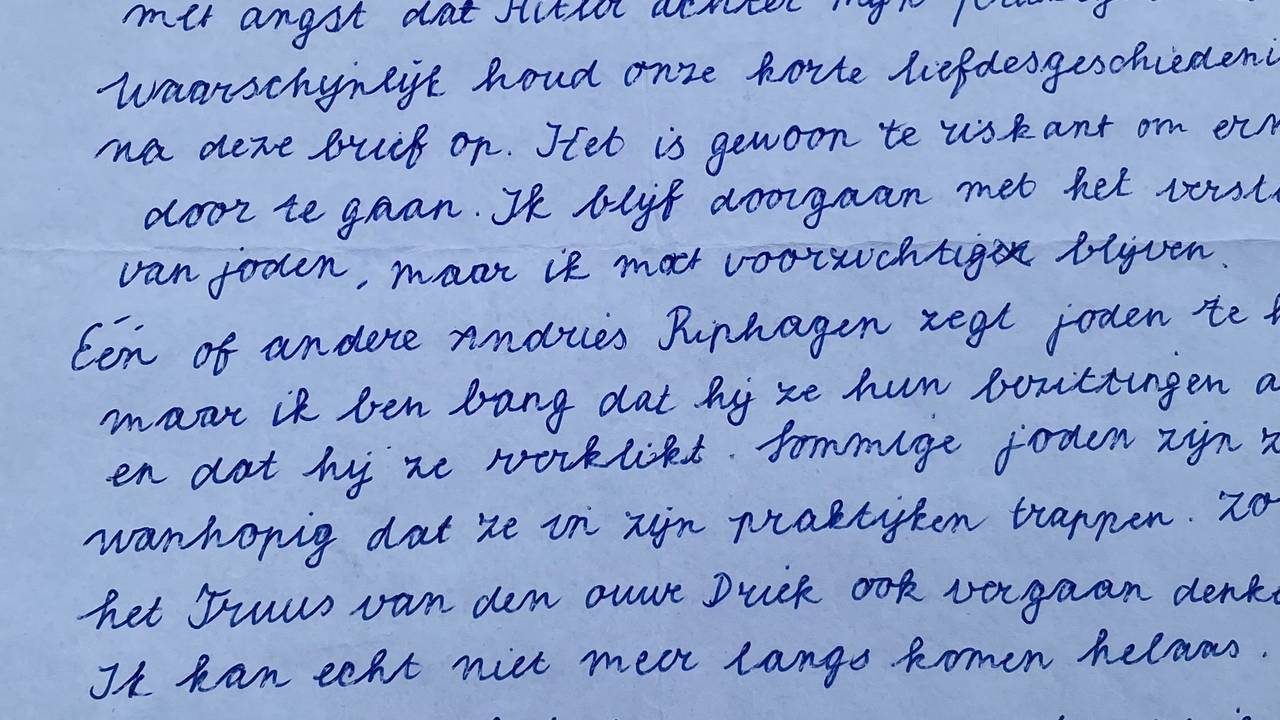 met angst dat Hitler achter mijn
Waarschijnlijk houd onze korte liefdesgeschiedeni
na deze brief op. Het is gewoon te riskant om er
door te gaan. Ik blijf doorgaan met het verst
van joden, maar ik moet voorzichtig blijven.
Eén of andere Andries Riphagen zegt joden te h
maar ik ben bang dat hij ze hun bezittingen a
en dat hij ze verklikt. Sommige joden zijn z
wanhopig dat ze in zijn praktijken trappen. Zo
het Truus van den ouwe Driek ook vergaan denk
Ik kan echt niet meer langs komen helaas.